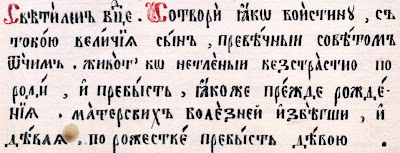 Свѣти́ленъ вⷣце. Сотвори̑ ꙗ҆́кѡ вои́стину, съ
тобо́ю вели́чїѧ сы́нъ, превѣ́чныи совѣ́томъ
ѻ҆́ч҃имъ. живо́тъ кѡ нетлѣ́ныи безстра́стно по
роди̑, и҆ пребы́сть, ꙗ҆́коже пре́жде рожде́-
нїѧ. ма́терьскихъ болѣ́зней и҆збѣ́гши, и҆
дѣ́ваѧ, по рожествѣ̀ пребы́сть дѣ́вою.